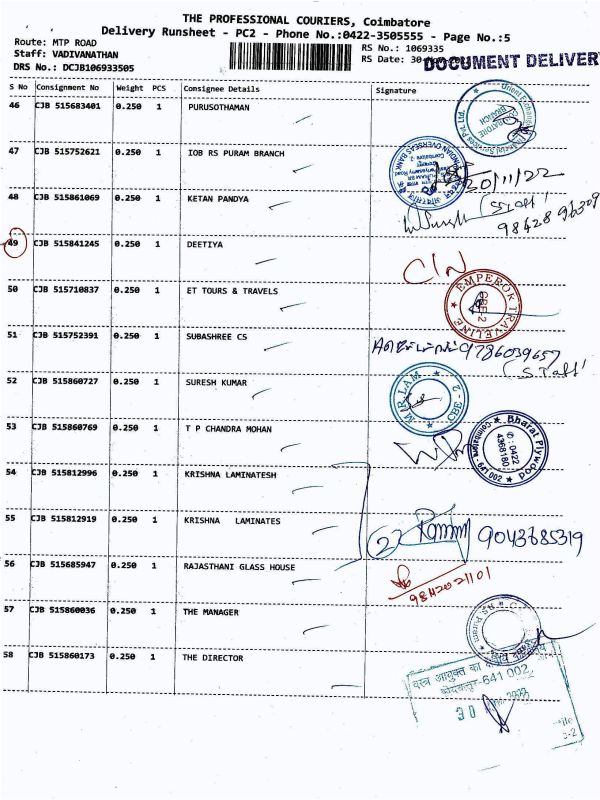 THE PROFESSIONAL COURIERS, Coimbatore
Delivery Runsheet - PC2 - Phone No.:0422-3505555 - Page No.:5
Route: MTP ROAD
Staff: VADIVANATHAN
DRS No.: DCJB106933505
RS No.: 1069335
RS Date: 30
DOCUMENT DELIVERY
S No Consignment No Weight PCS Consignee Details Signature
46 CJB 515683401 0.250 1 PURUSOTHAMAN
COIMBATORE BRANCH
47 CJB 515752621 0.250 1 IOB RS PURAM BRANCH
INDIAN OVERSEAS BANK
20/11/22
48 CJB 515861069 0.250 1 KETAN PANDYA
(Staff)
98428 96309
49 CJB 515841245 0.250 1 DEETIYA
C/N
50 CJB 515710837 0.250 1 ET TOURS & TRAVELS
EMPEROR TRAVELINE
CBE-2
51 CJB 515752391 0.250 1 SUBASHREE CS
9786039657
(Staff)
52 CJB 515860727 0.250 1 SURESH KUMAR
MIR LAM
CBE - 2
53 CJB 515860769 0.250 1 T P CHANDRA MOHAN
Bharat Plywood
✆ : 0422
4368180
Coimbatore - 641 002
54 CJB 515812996 0.250 1 KRISHNA LAMINATESH
55 CJB 515812919 0.250 1 KRISHNA LAMINATES
(2) 9043685319
56 CJB 515685947 0.250 1 RAJASTHANI GLASS HOUSE
9842021101
57 CJB 515860036 0.250 1 THE MANAGER
R.S. Puram
58 CJB 515860173 0.250 1 THE DIRECTOR
वस्त्र आयुक्त का
कोयम्बत्तूर-641 002
30